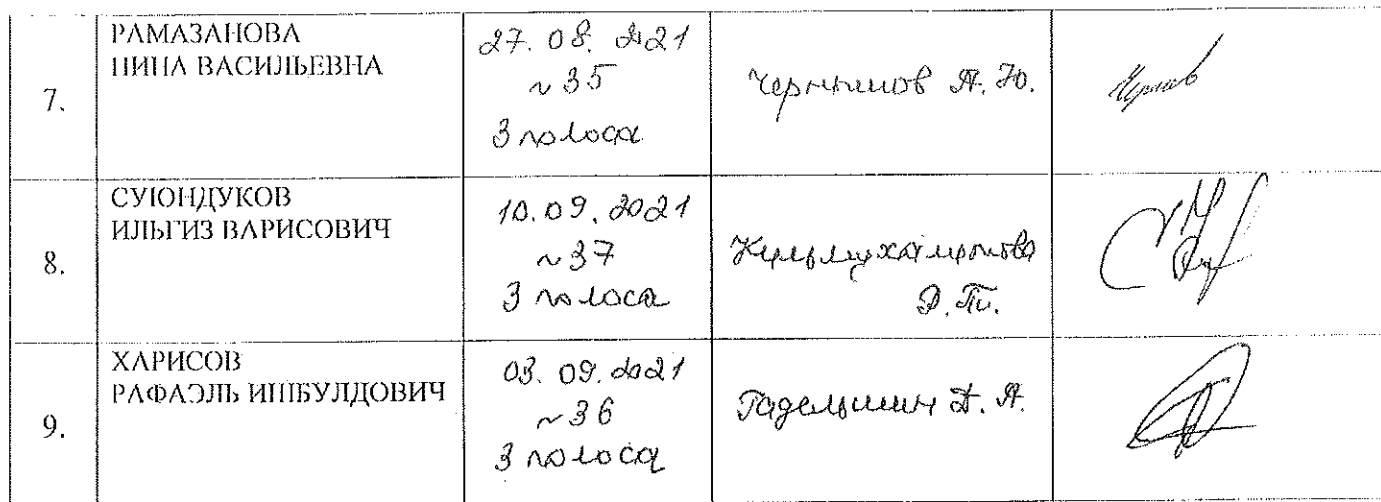 7.
РАМАЗАНОВА
НИНА ВАСИЛЬЕВНА
27.08.2021
№35
3 полоса
Чернышов А.Ю.
8.
СУЮНДУКОВ
ИЛЬГИЗ ВАРИСОВИЧ
10.09.2021
№37
3 полоса
9.
ХАРИСОВ
РАФАЭЛЬ ИШБУЛДОВИЧ
03.09.2021
№36
3 полоса
Гадельшин Д.А.